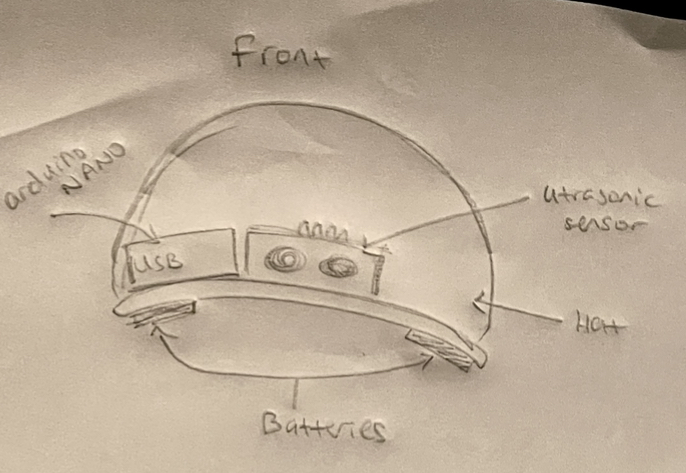 Front
arduino
NANO
utrasonic
sensor
USB
Hat
Batteries